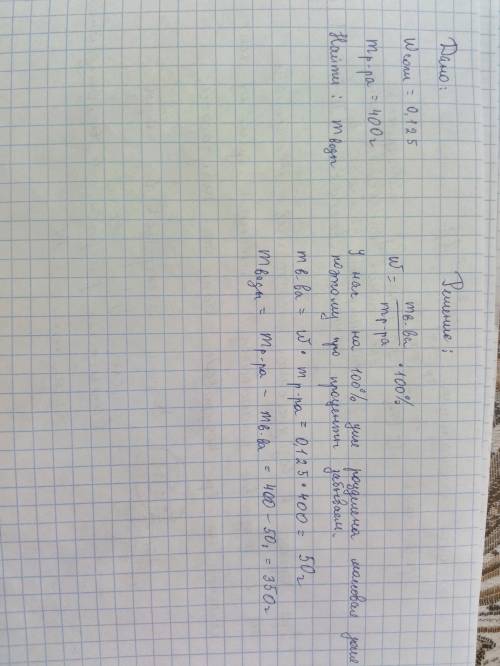 Дано:
Wсоли = 0,125
mр-ра = 400г
Найти: mводы
Решение:
W = mв.ва / mр-ра • 100%
У нас на 100% уже разделена массовая доля
поэтому про проценты забываем.
mв.ва = W • mр-ра = 0,125 • 400 = 50г
mводы = mр-ра - mв.ва = 400 - 50, = 350г